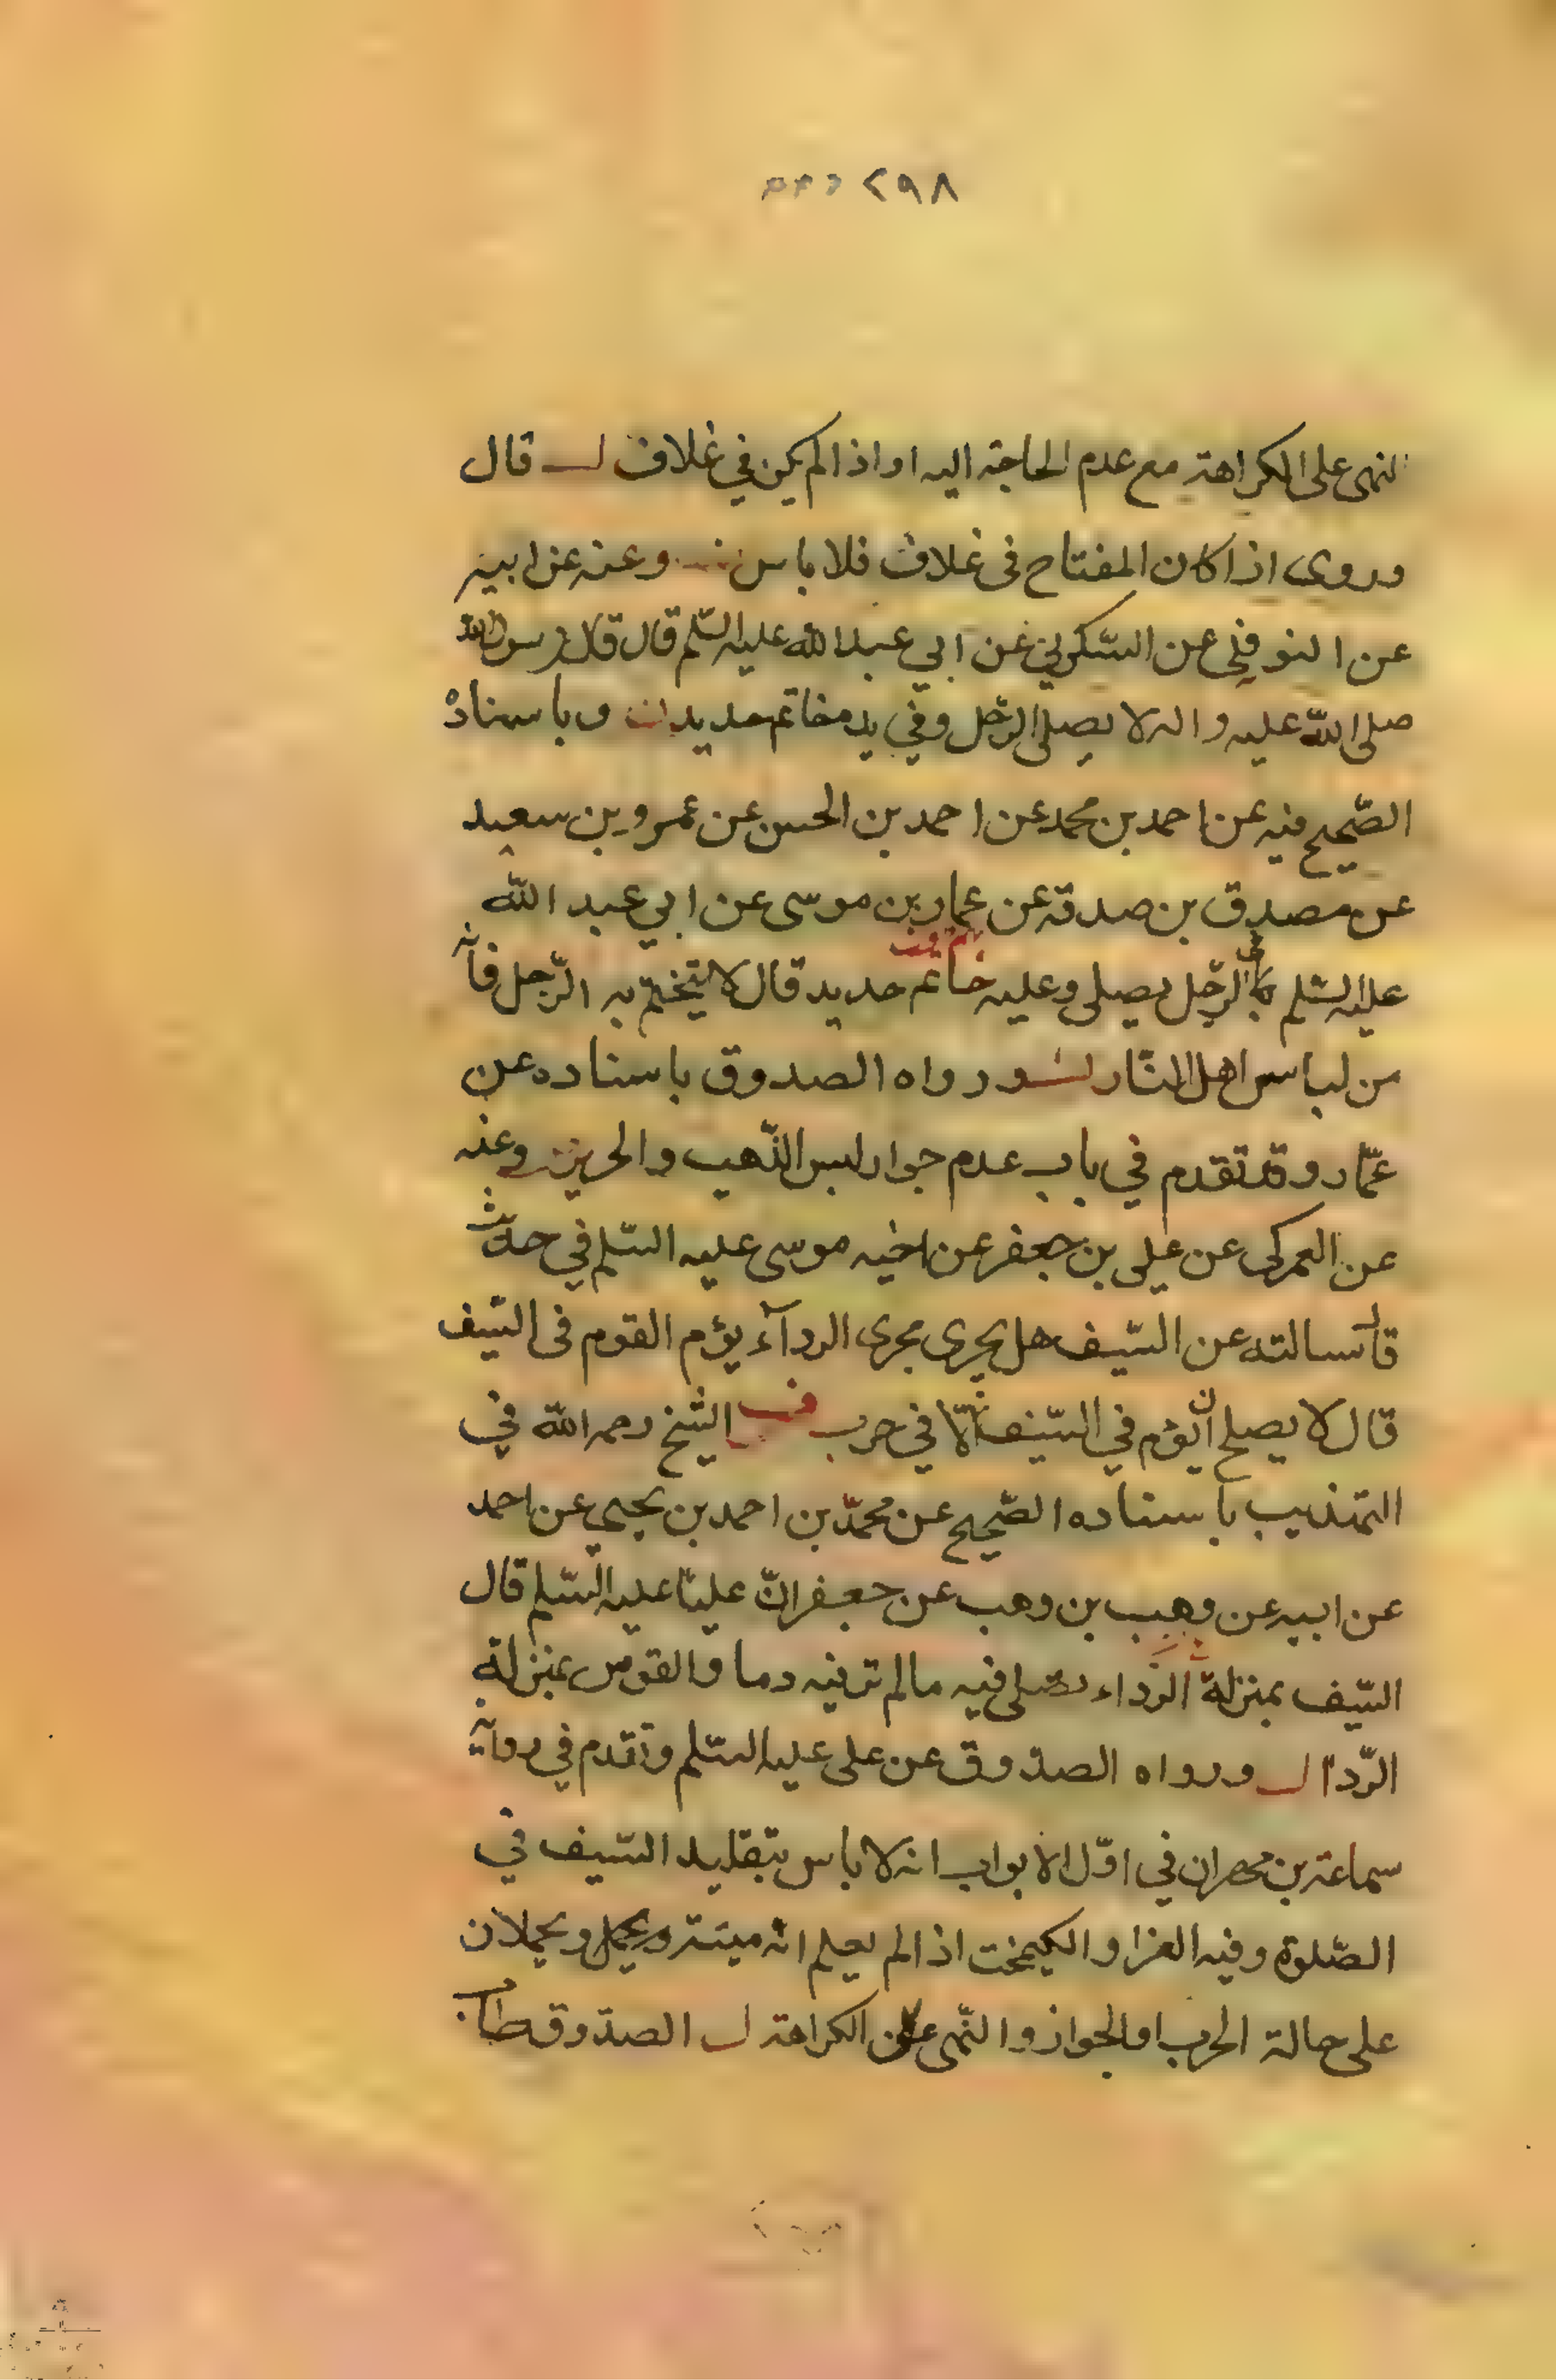 ٢٩٨
النهى على الكراهة مع عدم الحاجة اليه او اذا لم يكن في غلاف لـ قال
وروى اذا كان المفتاح فى غلاف فلا باس وعنه عن ابيه
عن النوفلي عن السّكوني عن ابي عبد الله عليه السّلم قال قال رسول الله
صلى الله عليه واله لا يصلى الرّجل وفي يده خاتم حديد وباسناده
الصّحيح فيه عن احمد بن محمد عن احمد بن الحسن عن عمرو بن سعيد
عن مصدق بن صدقه عن عمار بن موسى عن ابي عبد الله
عليه السّلم في الرّجل يصلى وعليه خاتم حديد قال لا يتختم به الرّجل فانّه
من لباس اهل النّار ورواه الصدوق باسناده عن
عمّار وقد تقدم في باب عدم جواز لبس الذّهب والحرير وعنه
عن العمركى عن على بن جعفر عن اخيه موسى عليه السّلم في حديث
قال سالته عن السّيف هل يجرى مجرى الردآء يؤم القوم فى السّيف
قال لا يصلح ان يؤم في السّيف الّا في حرب الشّيخ رحمه الله في
التهذيب باسناده الصّحيح عن محمّد بن احمد بن يحيى عن احمد
عن ابيه عن وهيب بن وهب عن جعفر انّ عليّا عليه السّلم قال
السّيف بمنزلة الرّداء تصلى فيه مالم تر فيه دما والقوس بمنزلة
الرّدا لـ ورواه الصدوق عن على عليه السّلم وتقدم في رواية
سماعة بن مهران في اوّل الابواب انه لا باس بتقليد السّيف في
الصّلوة وفيه الغرا والكيمخت اذا لم يعلم انّه ميتة ويحمل ويحملان
على حالة الحرب او الجواز والنّهى على الكراهة لـ الصدّوق طاب